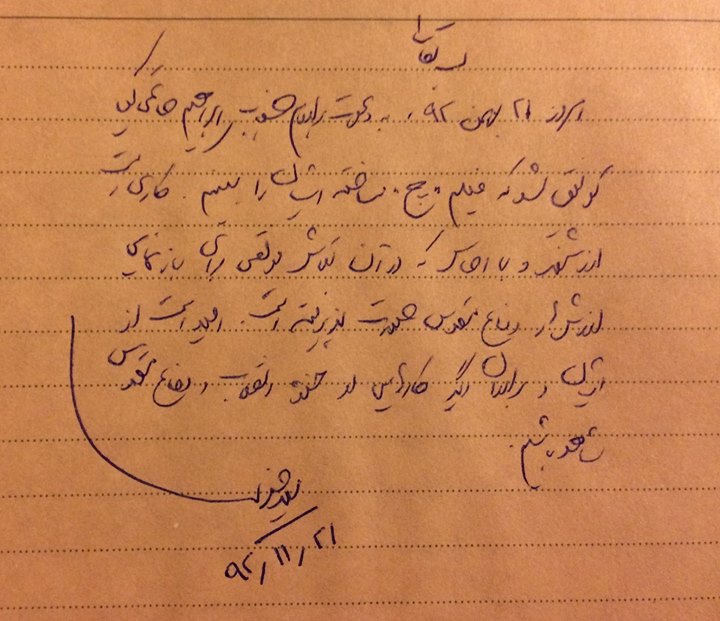 بسمه تعالی
امروز ۲۱ بهمن ۹۲، به دعوت برادرم جناب ابراهیم حاتمی‌کیا
توفیق شد که فیلم «چ» ساخته ایشان را ببینم. کاری است
ارزشمند و با احساس که در آن تلاش موفقی برای بازنمایی
ارزشهای دفاع مقدس صورت پذیرفته است. امید است از
ایشان و برادران دیگر کارهایی در حوزه انقلاب و دفاع مقدس
شاهد باشیم.
۹۲/۱۱/۲۱